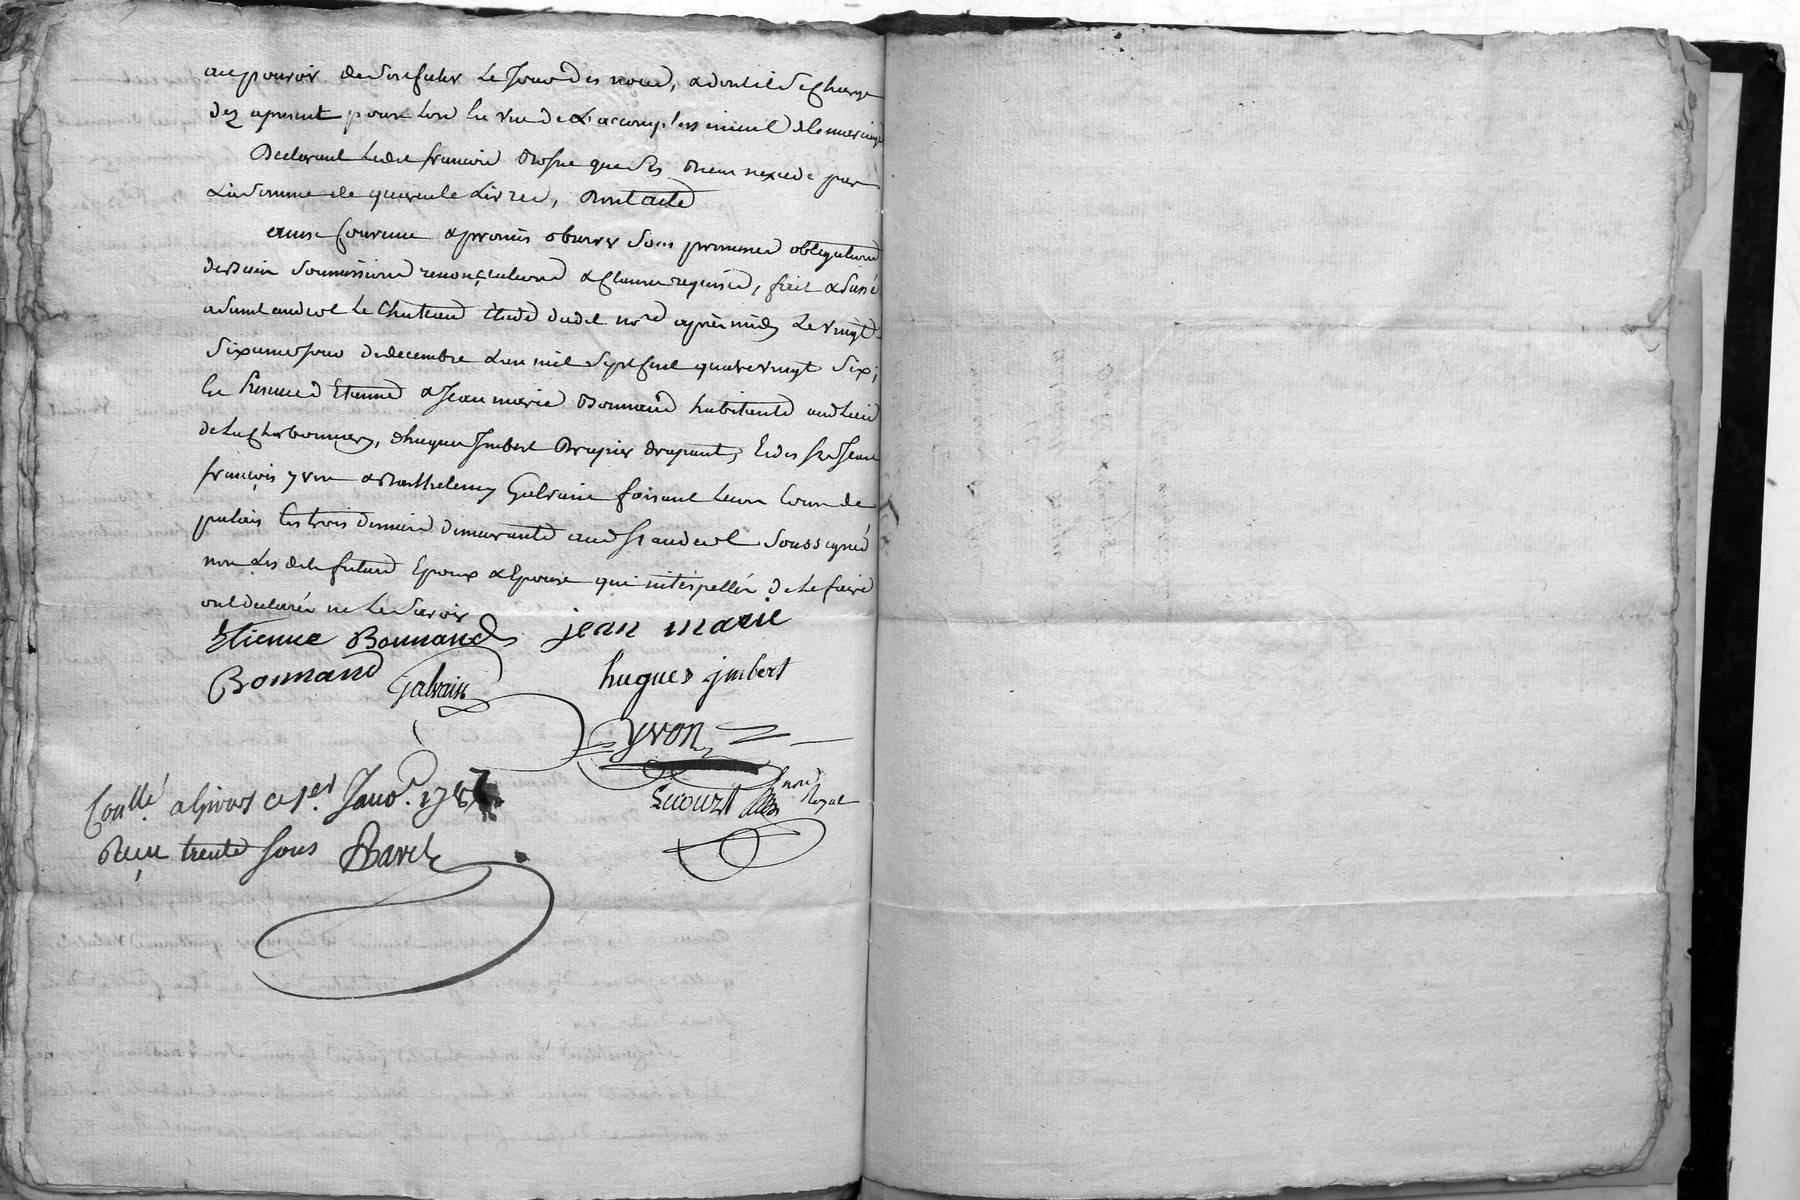 au pouvoir de son futur le Jour des noces, & dont il se charge
dez apresent pour lors en vue de l'accomplissement de
Declarant led. françois que ses Biens nexcede pas
La somme de quarente Livres, Dont acte
ainsi convenu & promis observer sous promesses obligations
de Biens soumissions renonçiations & clauses requises, fait & passé
a saint andeol le Chateau étude dudit no.re après midy Le vingt
sixieme jour de decembre L'an mil sept cent quatre vingt six,
En Presence d'Etienne & Jean marie Bonnand habitants aud. Lieu
de La Charbonniery, d'hugues Imbert Drapier drapant, Et des srs Jean
françois yvon & Barthelemy Galvain faisant leurs Cours de
palais les trois derniers demeurants aud. st andeol soussignés
non Les dits futurs Epoux & Epouse qui intérpellés de le faire
ont declarés ne le savoir
Etienne Bonnand jean marie
Bonnand Galvain hugues jmbert
yvon
Lecourt no.re Royal
Con.llé a Givors ce 1.er Janv. 1787
Reçu trente sous